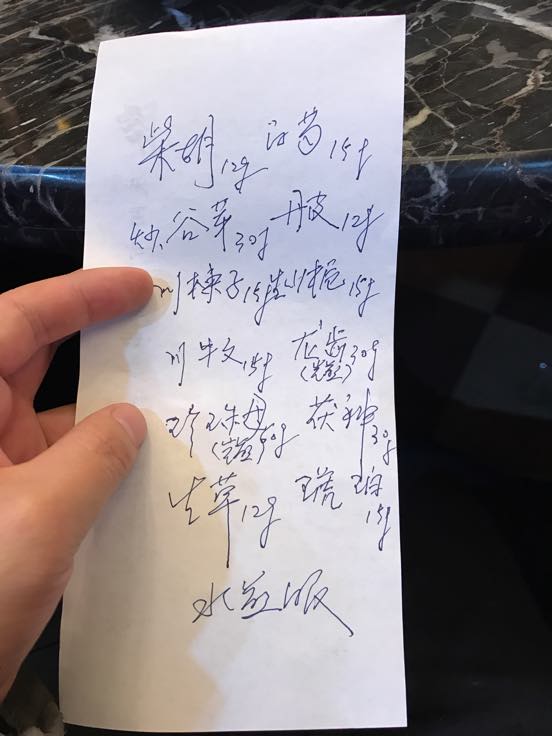 柴胡12g 白芍15g
炒谷芽30g 丹皮12g
川楝子15g 生山栀15g
川牛文15g 龙齿30g
(先煎)
珍珠母30g 茯神30g
(先煎)
生草12g 琥珀15g
水煎服